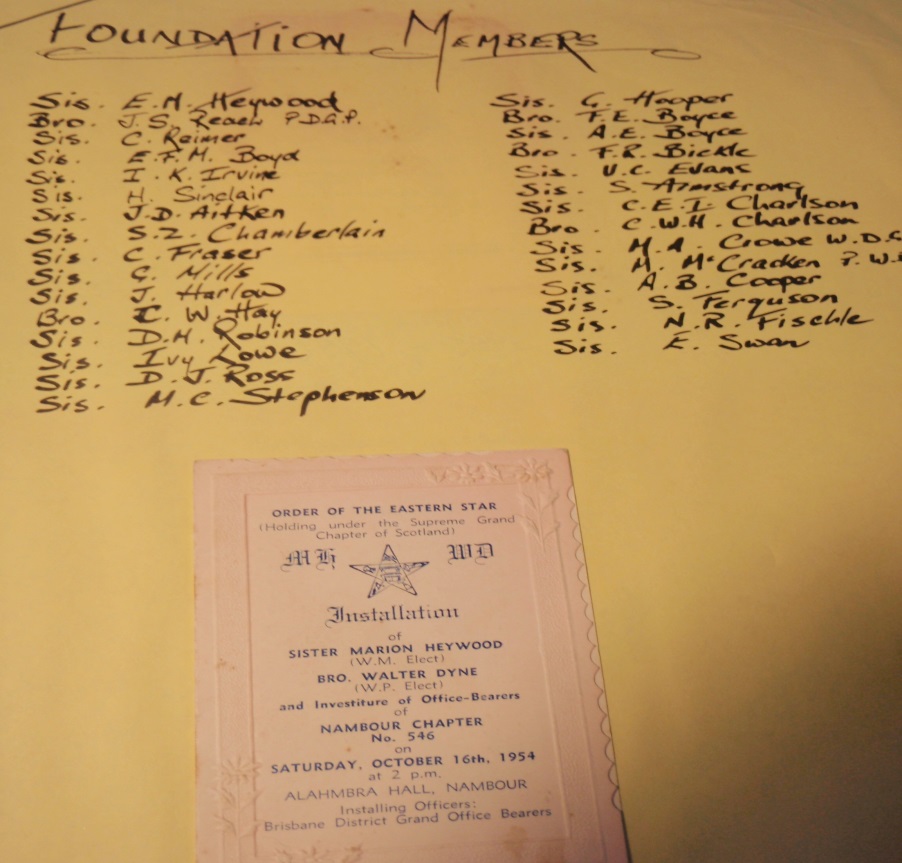 FOUNDATION MEMBERS
Sis. E.M. Heywood
Bro. J.S. Reach P.D.G.P.
Sis. C. Reimer
Sis. E.F.M. Boyd
Sis. I.K. Irvine
Sis. H. Sinclair
Sis. J.D. Aitken
Sis. S.Z. Chamberlain
Sis. C. Fraser
Sis. G. Mills
Sis. J. Harlow
Bro. C.W. Hay
Sis. D.H. Robinson
Sis. Ivy Lowe
Sis. D.J. Ross
Sis. M.C. Stephenson
Sis. G. Hooper
Bro. F.E. Boyce
Sis. A.E. Boyce
Bro. F.R. Bickle
Sis. V.C. Evans
Sis. S. Armstrong
Sis. C.E.I. Charlson
Bro. C.W.H. Charlson
Sis. M.A. Crowe W.D.G
Sis. M. McCracken P.W.
Sis. A.B. Cooper
Sis. S. Ferguson
Sis. N.R. Fischle
Sis. E. Swan
ORDER OF THE EASTERN STAR
(Holding under the Supreme Grand
Chapter of Scotland)
MH WD
Installation
of
SISTER MARION HEYWOOD
(W.M. Elect)
BRO. WALTER DYNE
(W.P. Elect)
and Investiture of Office-Bearers
of
NAMBOUR CHAPTER
No. 546
on
SATURDAY, OCTOBER 16th, 1954
at 2 p.m.
ALAHMBRA HALL, NAMBOUR
Installing Officers:
Brisbane District Grand Office Bearers